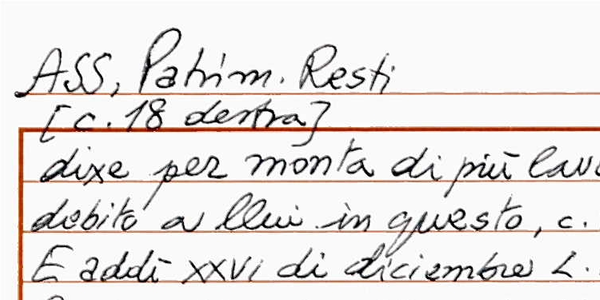 ASS, Patrim. Resti
[c. 18 destra]
dixe per monta di più lavo
debito a llui in questo, c.
E addì XXVI di diciembre L.